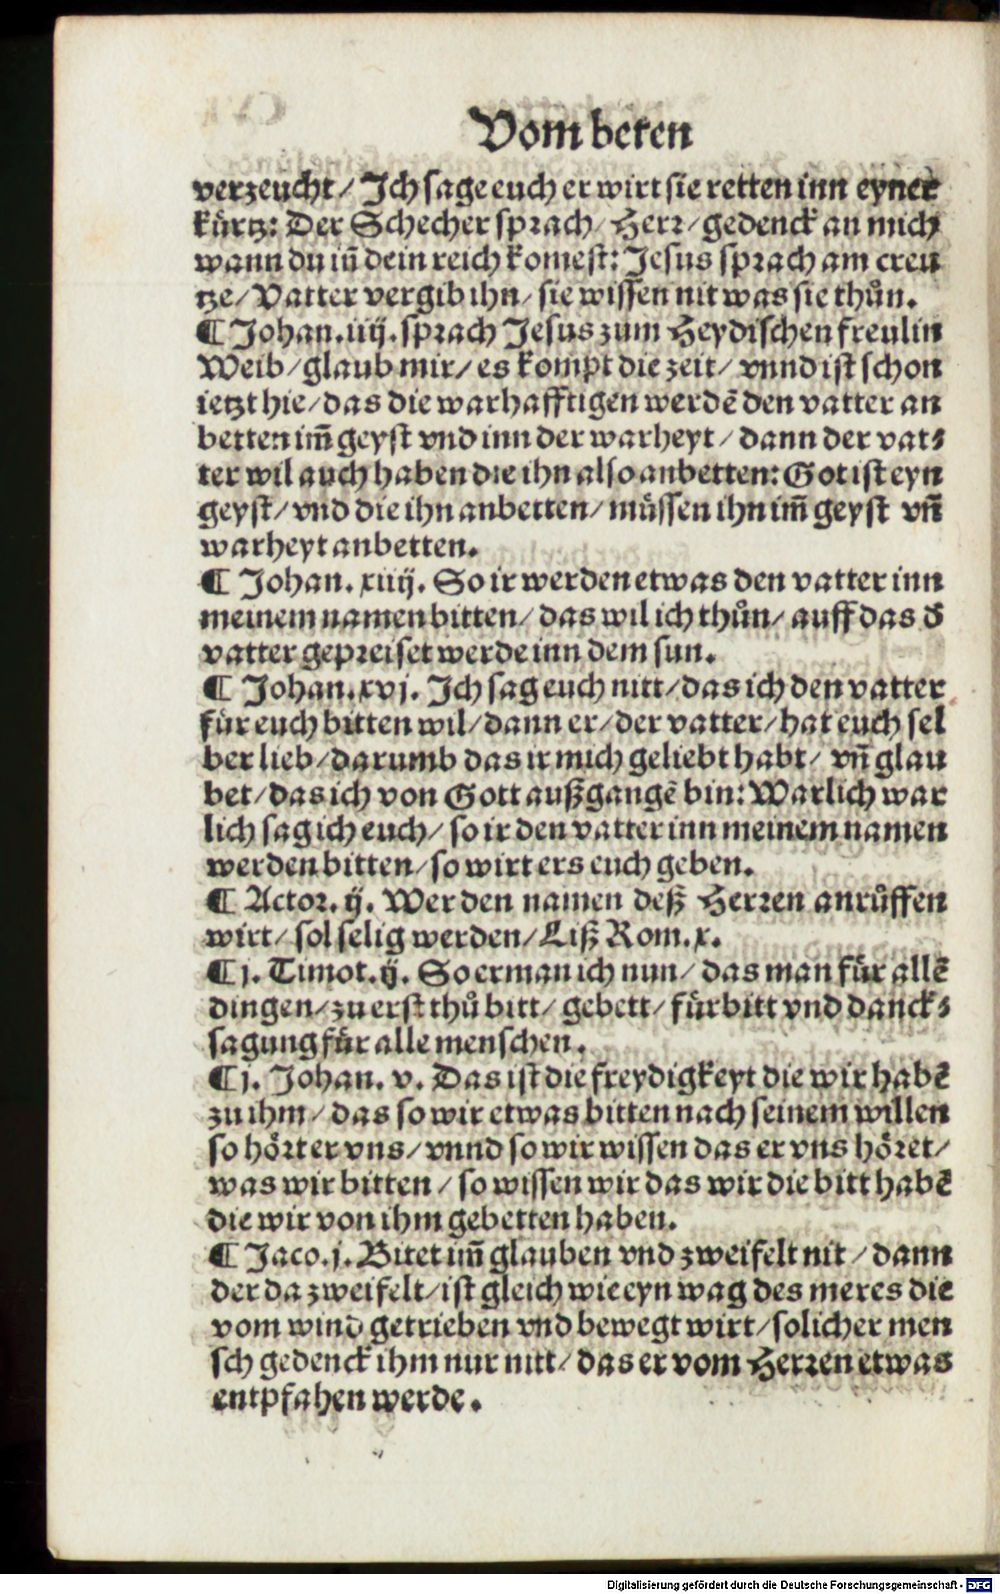 Vom beten
verzeucht / Ich sage euch er wirt sie retten inn eyner
kürtz: Der Schecher sprach / Herr / gedenck an mich
wann du iñ dein reich komest: Jesus sprach am creu
tze / Vatter vergib ihn / sie wissen nit was sie thůn.
¶ Johan. iiij. sprach Jesus zum Heydischen freulin
Weib / glaub mir / es kompt die zeit / vnnd ist schon
ietzt hie / das die warhafftigen werdẽ den vatter an
betten im̃ geyst vnd inn der warheyt / dann der vat⸗
ter wil auch haben die ihn also anbetten: Got ist eyn
geyst / vnd die ihn anbetten / müssen ihn im̃ geyst vñ
warheyt anbetten.
¶ Johan. xiiij. So ir werden etwas den vatter inn
meinem namen bitten / das wil ich thůn / auff das d̕
vatter gepreiset werde inn dem sun.
¶ Johan. xvj. Ich sag euch nitt / das ich den vatter
für euch bitten wil / dann er / der vatter / hat euch sel
ber lieb / darumb das ir mich geliebt habt / vñ glau
bet / das ich von Gott außgangẽ bin: Warlich war
lich sag ich euch / so ir den vatter inn meinem namen
werden bitten / so wirt ers euch geben.
¶ Actor. ij. Wer den namen deß Herren anrůffen
wirt / sol selig werden / Liß Rom. x.
¶ j. Timot. ij. So erman ich nun / das man für allẽ
dingen / zu erst thů bitt / gebett / fürbitt vnd danck⸗
sagung für alle menschen.
¶ j. Johan. v. Das ist die freydigkeyt die wir habẽ
zu ihm / das so wir etwas bitten nach seinem willen
so hört er vns / vnnd so wir wissen das er vns höret /
was wir bitten / so wissen wir das wir die bitt habẽ
die wir von ihm gebetten haben.
¶ Jaco. j. Bitet im̃ glauben vnd zweifelt nit / dann
der da zweifelt / ist gleich wie eyn wag des meres die
vom wind getrieben vnd bewegt wirt / solicher men
sch gedenck ihm nur nitt / das er vom Herren etwas
entpfahen werde.
Digitalisierung gefördert durch die Deutsche Forschungsgemeinschaft - DFG